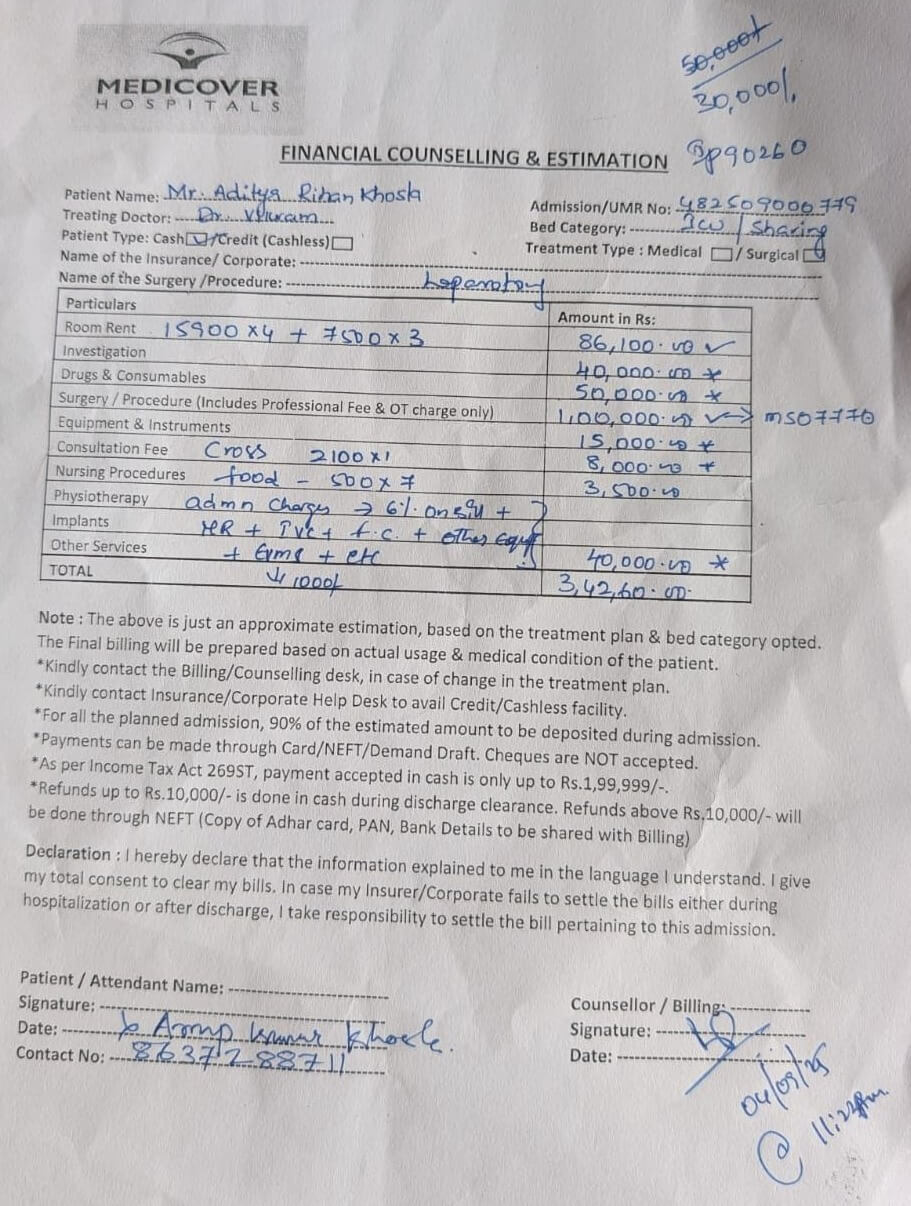 MEDICOVER
HOSPITALS
50,000/
30,000/.
BP90260
FINANCIAL COUNSELLING & ESTIMATION
Patient Name: Mr. Aditya Rihan Khosla
Admission/UMR No: 482509000779
Treating Doctor: Dr. Vikram
Bed Category: ICU / Sharing
Patient Type: Cash /Credit (Cashless)
Treatment Type : Medical / Surgical
Name of the Insurance/ Corporate:
Name of the Surgery /Procedure: Laparotomy
Particulars Amount in Rs:
Room Rent 15900 x 4 + 7500 x 3 86,100.00
Investigation 40,000.00 *
Drugs & Consumables 50,000.00 *
Surgery / Procedure (Includes Professional Fee & OT charge only) 1,00,000.00 → MS07770
Equipment & Instruments 15,000.00 *
Consultation Fee Cross 2100 x 1 8,000.00 *
Nursing Procedures food - 500 x 7 3,500.00
Physiotherapy admn Charges → 6% on bill +
Implants MR + + f.c. + other Equip
Other Services + + etc 40,000.00 *
TOTAL 1000/ 3,42,60.00.
Note : The above is just an approximate estimation, based on the treatment plan & bed category opted.
The Final billing will be prepared based on actual usage & medical condition of the patient.
*Kindly contact the Billing/Counselling desk, in case of change in the treatment plan.
*Kindly contact Insurance/Corporate Help Desk to avail Credit/Cashless facility.
*For all the planned admission, 90% of the estimated amount to be deposited during admission.
*Payments can be made through Card/NEFT/Demand Draft. Cheques are NOT accepted.
*As per Income Tax Act 269ST, payment accepted in cash is only up to Rs.1,99,999/-.
*Refunds up to Rs.10,000/- is done in cash during discharge clearance. Refunds above Rs.10,000/- will
be done through NEFT (Copy of Adhar card, PAN, Bank Details to be shared with Billing)
Declaration : I hereby declare that the information explained to me in the language I understand. I give
my total consent to clear my bills. In case my Insurer/Corporate fails to settle the bills either during
hospitalization or after discharge, I take responsibility to settle the bill pertaining to this admission.
Patient / Attendant Name:
Signature:
Date: Kumar Khosla.
Contact No: 8637288711
Counsellor / Billing:
Signature:
Date:
04/09/25
@ 11:22 Am